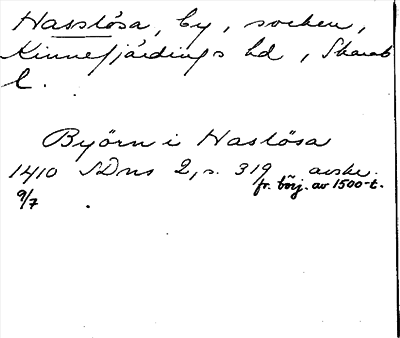 Hasslösa, by, socken,
Kinnefjärdings hd, Skarab
l.
Byörn i Haslösa
1410 SDns 2, s. 319 avskr.
fr. börj. av 1500-t.
9/7